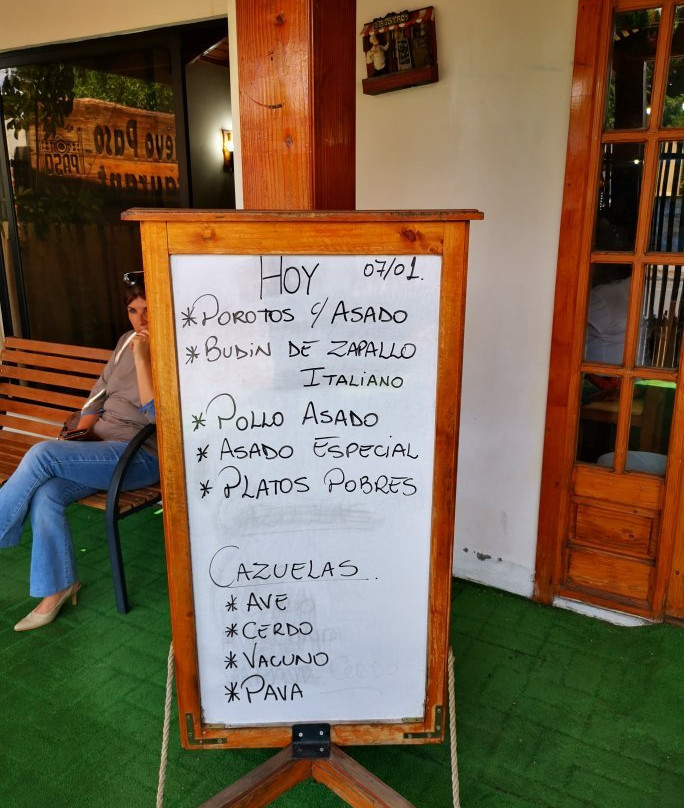 BISTRO
HOY 07/01.
*POROTOS C/ ASADO
*BUDIN DE ZAPALLO
ITALIANO
*POLLO ASADO
*ASADO ESPECIAL
*PLATOS POBRES
CAZUELAS
CAZUELAS
*AVE
*CERDO
*VACUNO
*PAVA